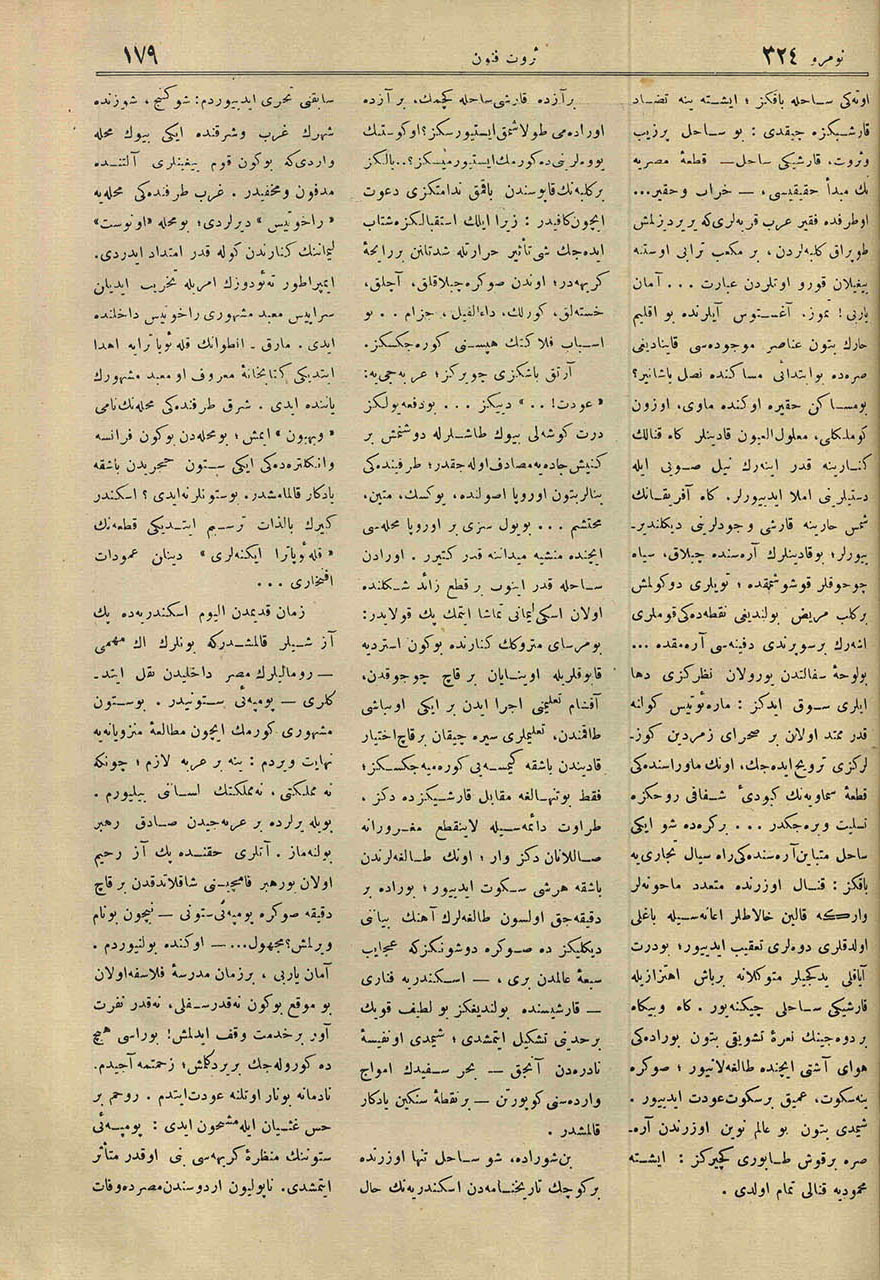 نومرو ٣٢٤
ثروت فنون
١٧٩
اوته‌كی ساحله باقكز ؛ ایشته ینه تضاد
قارشیكزه چیقدی : بو ساحل پرزیب
وثروت، قارشیكی ساحل — قطعهٔ مصریه
نك مبدأ حقیقیسی، — خراب وحقیر...
اوطرفده فقیر عرب قریه‌لری كه بربرلرینه
طوپراق كلبه‌لردن، بر مكعب ترابی اوستنه
ییغیلان قورو اوتلردن عبارت ... آمان
یاربی! تموز، آغستوس آیلرنده بو اقلیم
حارك بتون عناصر موجوده‌سی قاینادیغی
صره‌ده بو ابتدائی مساكنده نصل یاشانیر؟
بومساكن حقیره اوكنده ماوی، اوزون
كوملكلی، معلول العیون قادینلر كاه قنالك
كنارینه قدر اینه‌رك نیل صوبی ایله
دستیلرینی املا ایدییورلر، كاه آفریقانك
شمس حارینه قارشی وجودلرینی دیكلندیر-
ییورلر؛ بوقادینلرك آره‌سنده چپلاق، سیاه
چوجوقلر قوشوشمقده ؛ تویلری دوكولمش
بركلب مریض بولندیغی نقطه‌ده‌كی قوملری
اشه‌رك برسوپرندی دفینه‌سی آره‌مقده ...
بولوحهٔ سفالتدن یورولان نظركزی دها
ایلری سوق ایدكز : ماره‌ئوتیس كولنه
قدر ممتد اولان بر صحرای زمردین كوز-
لركزی ترویح ایده‌جك، اونك ماوراسنده‌كی
قطعهٔ سماویه‌نك كبودیٔ شفافی روحكزه
تسلیت ویره‌جكدر ... بركره‌ده شو ایكی
ساحل متباین آره‌سنده‌كی راه سیال تجاری‌یه
باقكز : قنال اوزرنده متعدد ماحونه‌لر
واركه قالین خالاطلر اعانه‌سیله باغلی
اولدقلری دوه‌لری تعقیب ایدییور؛ بودرت
آیاقلی یدكجیلر متوكلانه برباش اهتزازیله
قارشیكی ساحلی چیكنه‌یور. كاه وبیكاه
بردوه‌جینك نعرهٔ تشویقی بتون بوراده‌كی
هوای آتشی ایچنده طالغه‌لانیور ؛ صوكره
ینه سكوت، عمیق برسكوت عودت ایدییور .
شیمدی بتون بو عالم نوین اوزرندن آره-
صره برقوش طابوری كچیركز : ایشته
محمودیه قنالی تمام اولدی .
برآزده قارشی ساحله كچمك، برآزده
اوراده‌می طولاشمق ایستیورسكز؟ اوكوستبك
یووه‌لرینی ده كورمك ایستیورمیسكز؟.. یالكز
بركلبه‌نك قاپوسندن باقمق ندامتكزی دعوت
ایچون كافیدر : زیرا ایلك استقبالكزه شتاب
ایده‌جك شی تأثیر حرارتله شدتلنن بررایحهٔ
كریهه‌در؛ اوندن صوكره چپلاقلق، آچلق،
خسته‌لق، كورلك، داءالفیل، جزام .. بو
اسباب فلاكتك هپسنی كوره‌جكسكز.
آرتق باشكزی چویركز؛ عربه‌جی‌یه:
«عودت! ..» دییكز ... بودفعه یولكز
درت كوشه‌لی بیوك طاشلرله دوشنمش بر
كنیش جاده‌یه مصادف اوله‌جقدر؛ طرفینده‌كی
بنالر بتون اوروپا اصولنده، یوكسك، متین،
محتشم ... بویول سزی بر اوروپا محله‌سی
ایچنده منشیه میداننه قدر كتیرر . اورادن
ساحله قدر اینوب بر قطع زائد شكلنده
اولان اسكی لیمانی تماشا ایتمك پك قولایدر:
بومرسای متروكك كنارنده بوكون استردیه
قابوقلریله اوینایان بر قاچ چوجوقدن،
آقشام تعلیمی اجرا ایدن بر ایكی اوپاشی
طاقمندن، تعلیملری سیره چیقان برقاچ اختیار
قادیندن باشقه كیمسه‌یی كوره‌میه‌جكسكز؛
فقط بوتنهالغه مقابل قارشیكزده دكز ،
طراوت دائمه‌سیله لاینقطع مغرورانه
صاللانان دكز وار ؛ اونك طالغه‌لرندن
باشقه هرشی سكوت ایدییور ؛ بوراده بر
دقیقه‌جق اولسون طالغه‌لرك آهنك بیانی
دیكلیكز ده صوكره دوشونكزكه عجایب
سبعهٔ عالمدن بری ، — اسكندریه فناری
— قارشیسنده بولندیغكز بو لطیف قویك
برحدینی تشكیل ایتمشدی ؛ شیمدی اونفیسهٔ
نادره‌دن آنجق — بحر سفیدك امواج
وارده‌سنی كوپورتن — برنقطهٔ سنكین یادكار
قالمشدر .
بن شوراده، شو ساحل تنها اوزرنده
بركوچك تاریخنامه‌دن اسكندریه‌نك حال
سابقنی تحری ایدییوردم: شوكنج، شوزنده
شهرك غرب وشرقنده ایكی بیوك محله
واردی كه بوكون قوم ییغینلری آلتنده
مدفون ومخفیدر . غرب طرفنده‌كی محله‌یه
«راخوتیس» دیرلردی؛ بومحله «اونوست»
لیماننك كنارندن كوله قدر امتداد ایدردی.
ایمپراطور ته‌ئودوزك امریله تخریب ایدیلن
سراپیس معبد مشهوری راخوتیس داخلنده
ایدی. مارق ـ انطوانك قله‌ئوپاترایه اهدا
ایتدیكی كتابخانهٔ معروف او معبد مشهورك
یاننده ایدی . شرق طرفنده‌كی محله‌نك نامی
ایمش؛ بومحله‌دن بوكون فرانسه
وانكلتره‌ده‌كی ایكی ستون حجریدن باشقه
یادكار قالمامشدر. بوستونلر نه‌ایدی؟ اسكندر
كبیرك بالذات ترسیم ایتدیكی قطعه‌نك
«قله‌ئوپاترا ایكنه‌لری» دینلن عمودات
افتخاری ...
زمان قدیمدن الیوم اسكندریه‌ده پك
آز شیلر قالمشدركه بونلرك اك مهمی
— رومالیلرك مصر داخلیدن نقل ایتد-
كلری — پومپه‌ئی ستونیدر . بوستون
مشهوری كورمك ایچون مطالعهٔ منزویانه‌یه
نهایت ویردم : ینه بر عربه لازم؛ چونكه
نه مملكتی، نه‌مملكتك لسانی بیلیورم .
بویله یرلرده بر عربه‌جیدن صادق رهبر
بولنه‌ماز . آتلری حقنده پك آز رحیم
اولان بورهبر قامچیسنی شاقلاتدقدن برقاچ
دقیقه صوكره پومپه‌ئی ستونی — نیچون بونام
ویرلمش؟ مجهول...— اوكنده بولنیوردم .
آمان یاربی ، برزمان مدرسهٔ فلاسفه اولان
بو موقع بوكون نه‌قدر سفلی، نه‌قدر نفرت
آور برخدمت وقف ایدلمش! بوراسی هیچ
ده كوروله‌جك بریر دكلمش؛ زحمتمه آجیدم.
نادمانه بونار اوتلنه عودت ایتدم . روحم بر
حس غثیان ایله مشحون ایدی : پومپه‌ئی
ستوننك منظرهٔ كریهه‌سی بنی اوقدر متأثر
ایتمشدی. ناپولیون اردوسندن مصرده وفات